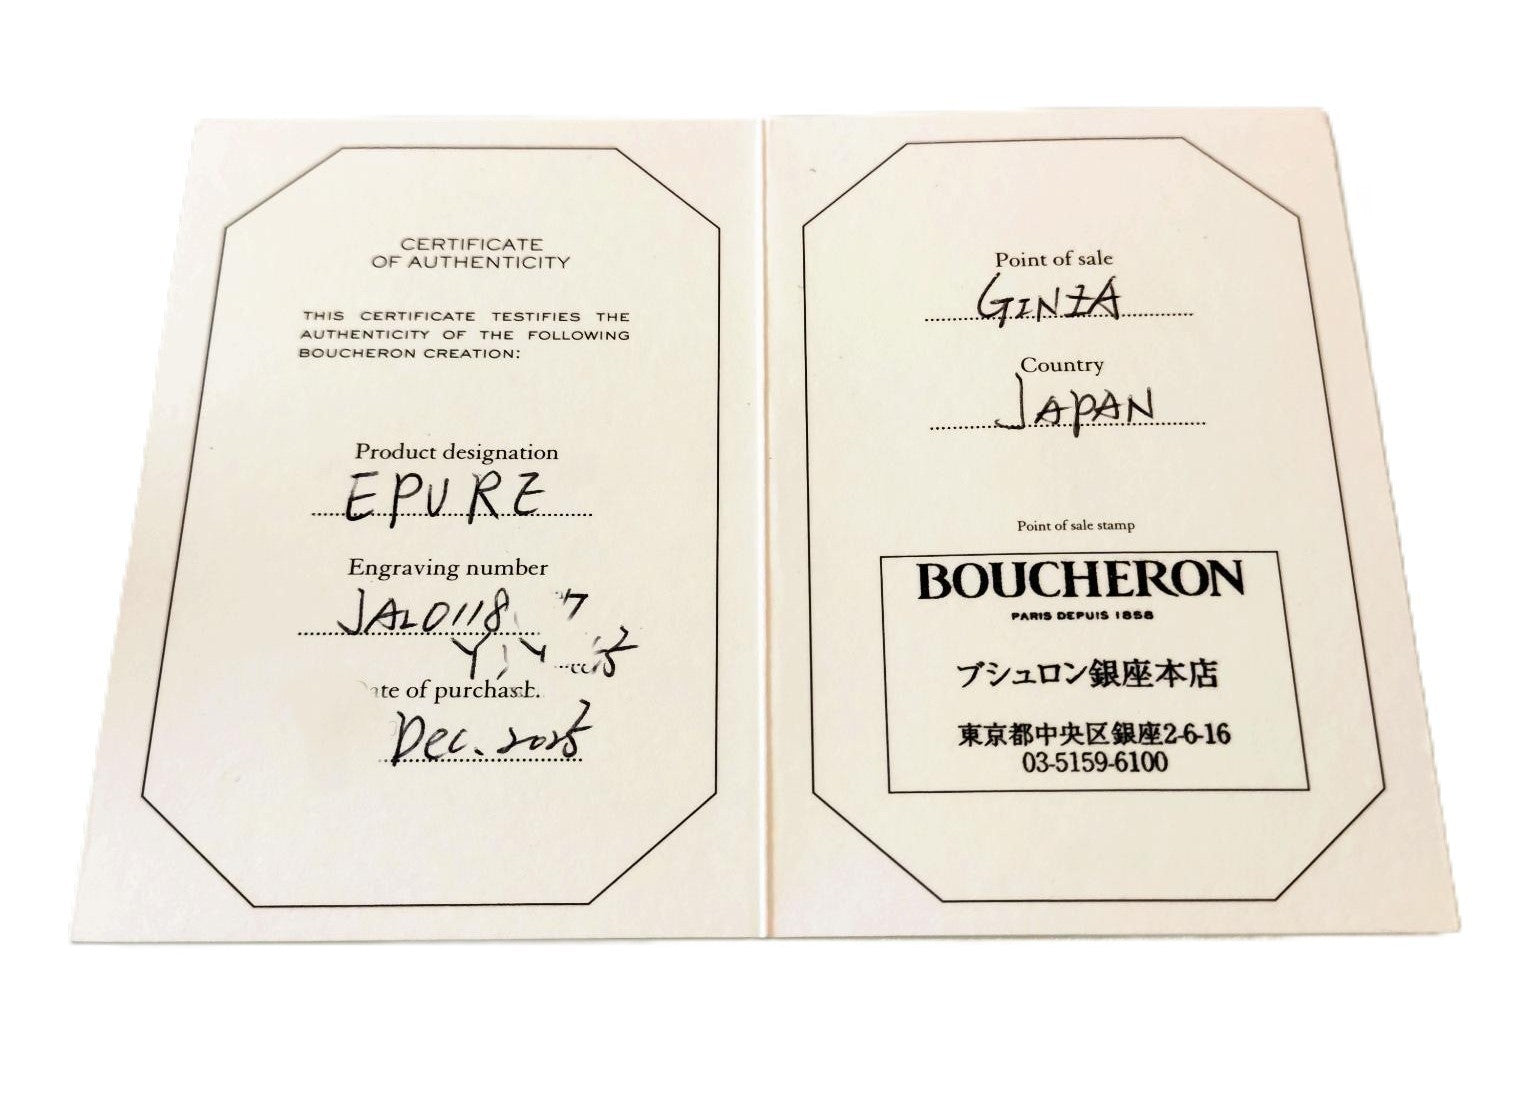 CERTIFICATE
OF AUTHENTICITY
THIS CERTIFICATE TESTIFIES THE
AUTHENTICITY OF THE FOLLOWING
BOUCHERON CREATION:
Product designation
EPURE
Engraving number
JAL0118
of
Dec. 2025
Point of sale
GINZA
Country
JAPAN
Point of sale stamp
BOUCHERON
PARIS DEPUIS 1858
ブシュロン銀座本店
東京都中央区銀座2-6-16
03-5159-6100